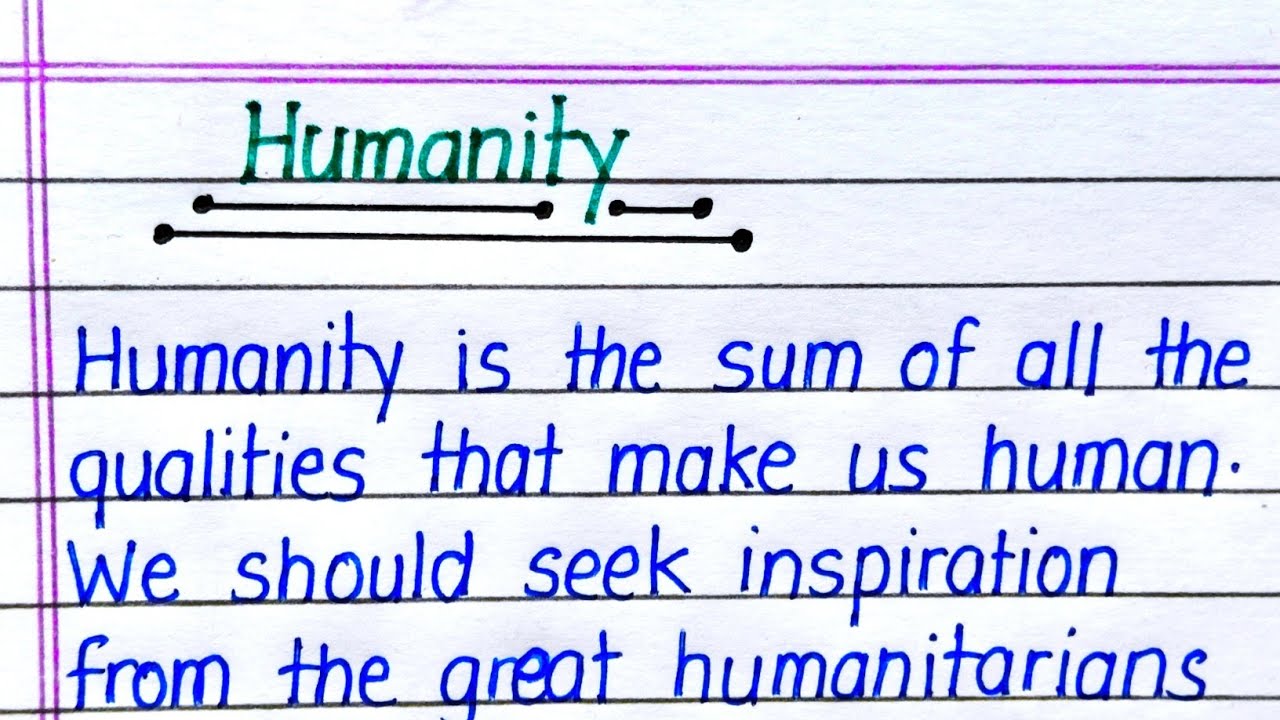 Humanity
Humanity is the sum of all the
qualities that make us human.
We should seek inspiration
from the great humanitarians